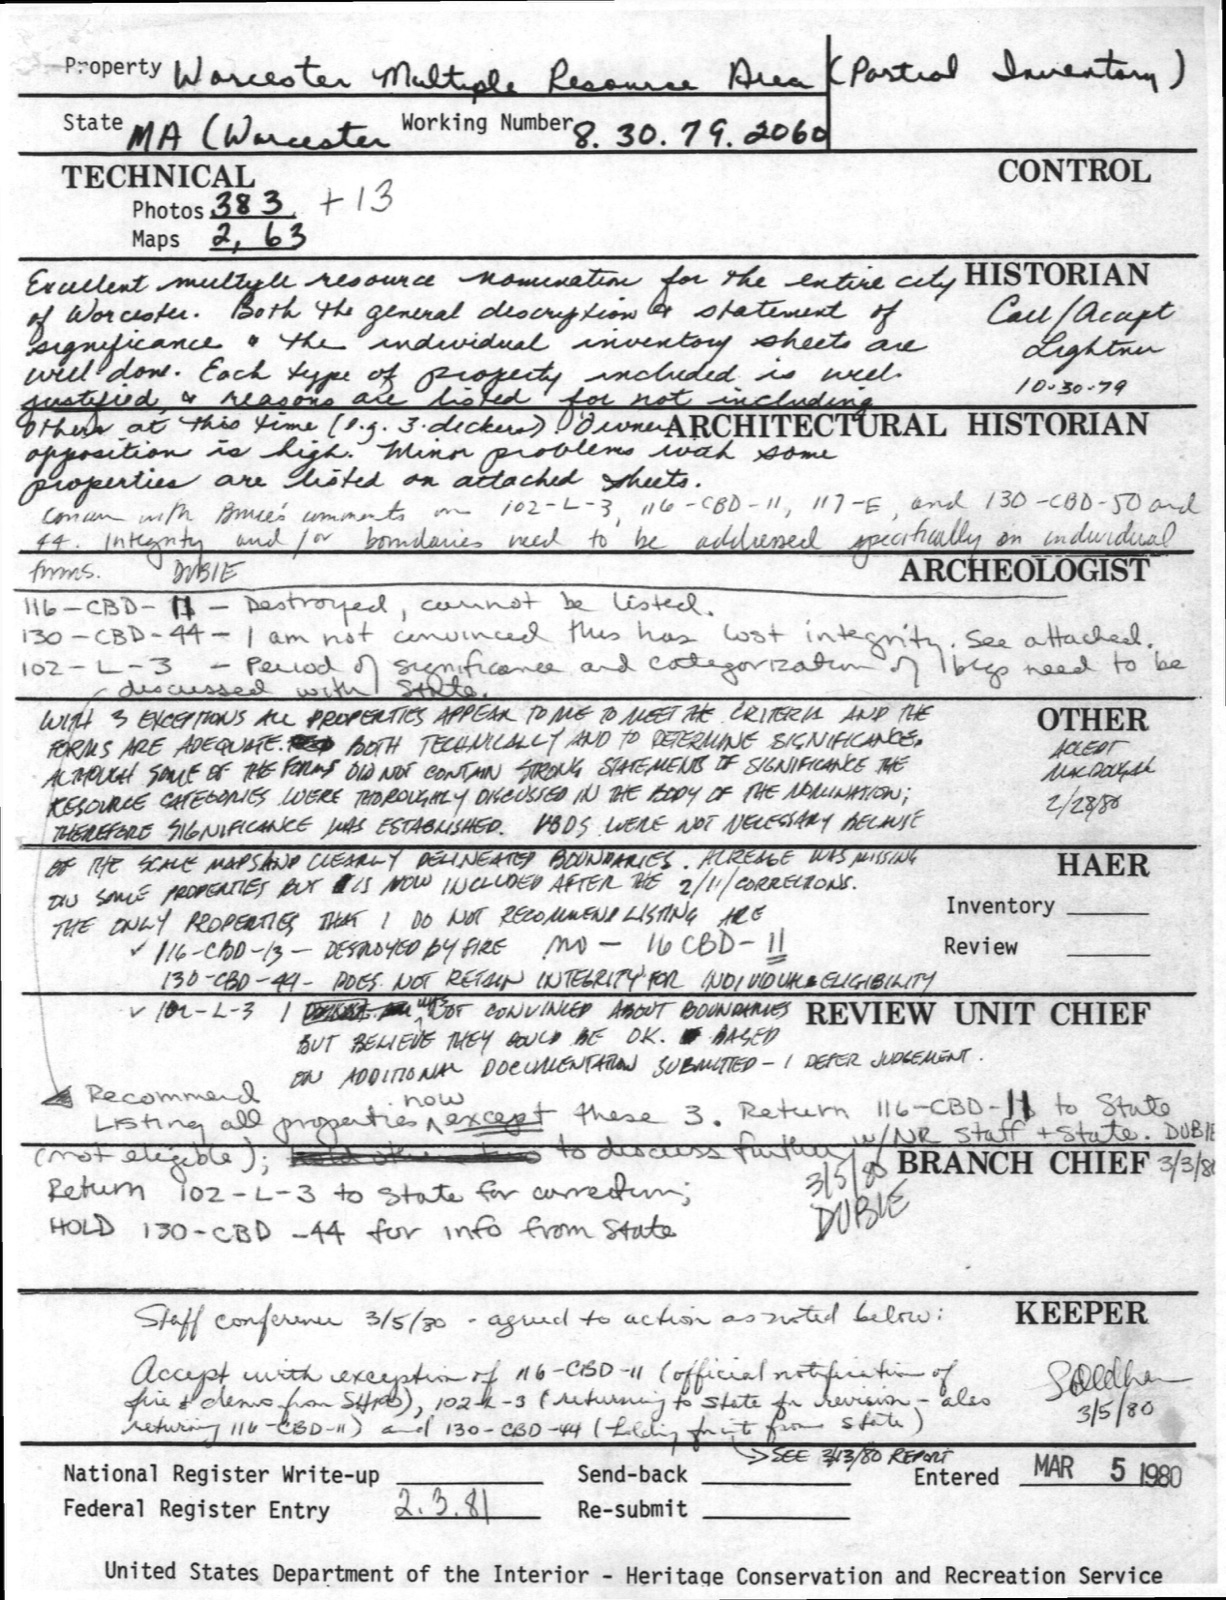 Property Worcester Multiple Resource Area (Partial Inventory)
State MA (Worcester Working Number 8.30.79.2060
TECHNICAL
CONTROL
Photos 383 + 13
Maps 2, 63
HISTORIAN
Excellent multiple resource nomination for the entire city
of Worcester. Both the general description & statement of
significance & the individual inventory sheets are
well done. Each type of property included is well
justified, & reasons are listed for not including
others at this time (e.g. 3-deckers). Owner
opposition is high. Minor problems with some
properties are listed on attached sheets.
Call/Accept
Lightner
10-30-79
ARCHITECTURAL HISTORIAN
Concur with Bruce's comments on 102-L-3, 116-CBD-11, 117-E, and 130-CBD-50 and
44. Integrity and/or boundaries need to be addressed specifically on individual
forms. DUBIE
ARCHEOLOGIST
116-CBD-11 - Destroyed, cannot be listed.
130-CBD-44 - I am not convinced this has lost integrity. See attached.
102-L-3 - Period of significance and categorization of bldgs need to be
discussed with State.
OTHER
ACCEPT
MACDOUGAL
2/28/80
WITH 3 EXCEPTIONS ALL PROPERTIES APPEAR TO ME TO MEET THE CRITERIA AND THE
FORMS ARE ADEQUATE BOTH TECHNICALLY AND TO DETERMINE SIGNIFICANCE.
ALTHOUGH SOME OF THE FORMS DID NOT CONTAIN STRONG STATEMENTS OF SIGNIFICANCE THE
RESOURCE CATEGORIES WERE THOROUGHLY DISCUSSED IN THE BODY OF THE NOMINATION;
THEREFORE SIGNIFICANCE WAS ESTABLISHED. VBDS WERE NOT NECESSARY BECAUSE
OF THE SCALE MAPS AND CLEARLY DELINEATED BOUNDARIES. ACREAGE WAS MISSING
ON SOME PROPERTIES BUT IS NOW INCLUDED AFTER THE 2/11/ CORRECTIONS.
THE ONLY PROPERTIES THAT I DO NOT RECOMMEND LISTING ARE
✓ 116-CBD-13 - DESTROYED BY FIRE NO - 116 CBD-11
130-CBD-44 - DOES NOT RETAIN INTEGRITY FOR INDIVIDUAL ELIGIBILITY
HAER
Inventory
Review
✓ 102-L-3 I was NOT CONVINCED ABOUT BOUNDARIES
BUT BELIEVE THEY COULD BE OK. BASED
ON ADDITIONAL DOCUMENTATION SUBMITTED - I DEFER JUDGEMENT.
REVIEW UNIT CHIEF
Recommend
Listing all properties now except these 3. Return 116-CBD-11 to State
(not eligible); to discuss further w/NR Staff + State. DUBIE
3/3/80
BRANCH CHIEF
Return 102-L-3 to State for correction;
HOLD 130-CBD-44 for info from State
3/5/80
DUBIE
KEEPER
Staff conference 3/5/80 - agreed to action as noted below:
Accept with exception of 116-CBD-11 (official notification of
fire & demo from SHPO), 102-L-3 (returning to State for revision - also
returning 116-CBD-11) and 130-CBD-44 (holding for it from State)
3/5/80
SEE 3/13/80 REPORT
National Register Write-up Send-back Entered MAR 5 1980
Federal Register Entry 2.3.81 Re-submit
United States Department of the Interior - Heritage Conservation and Recreation Service